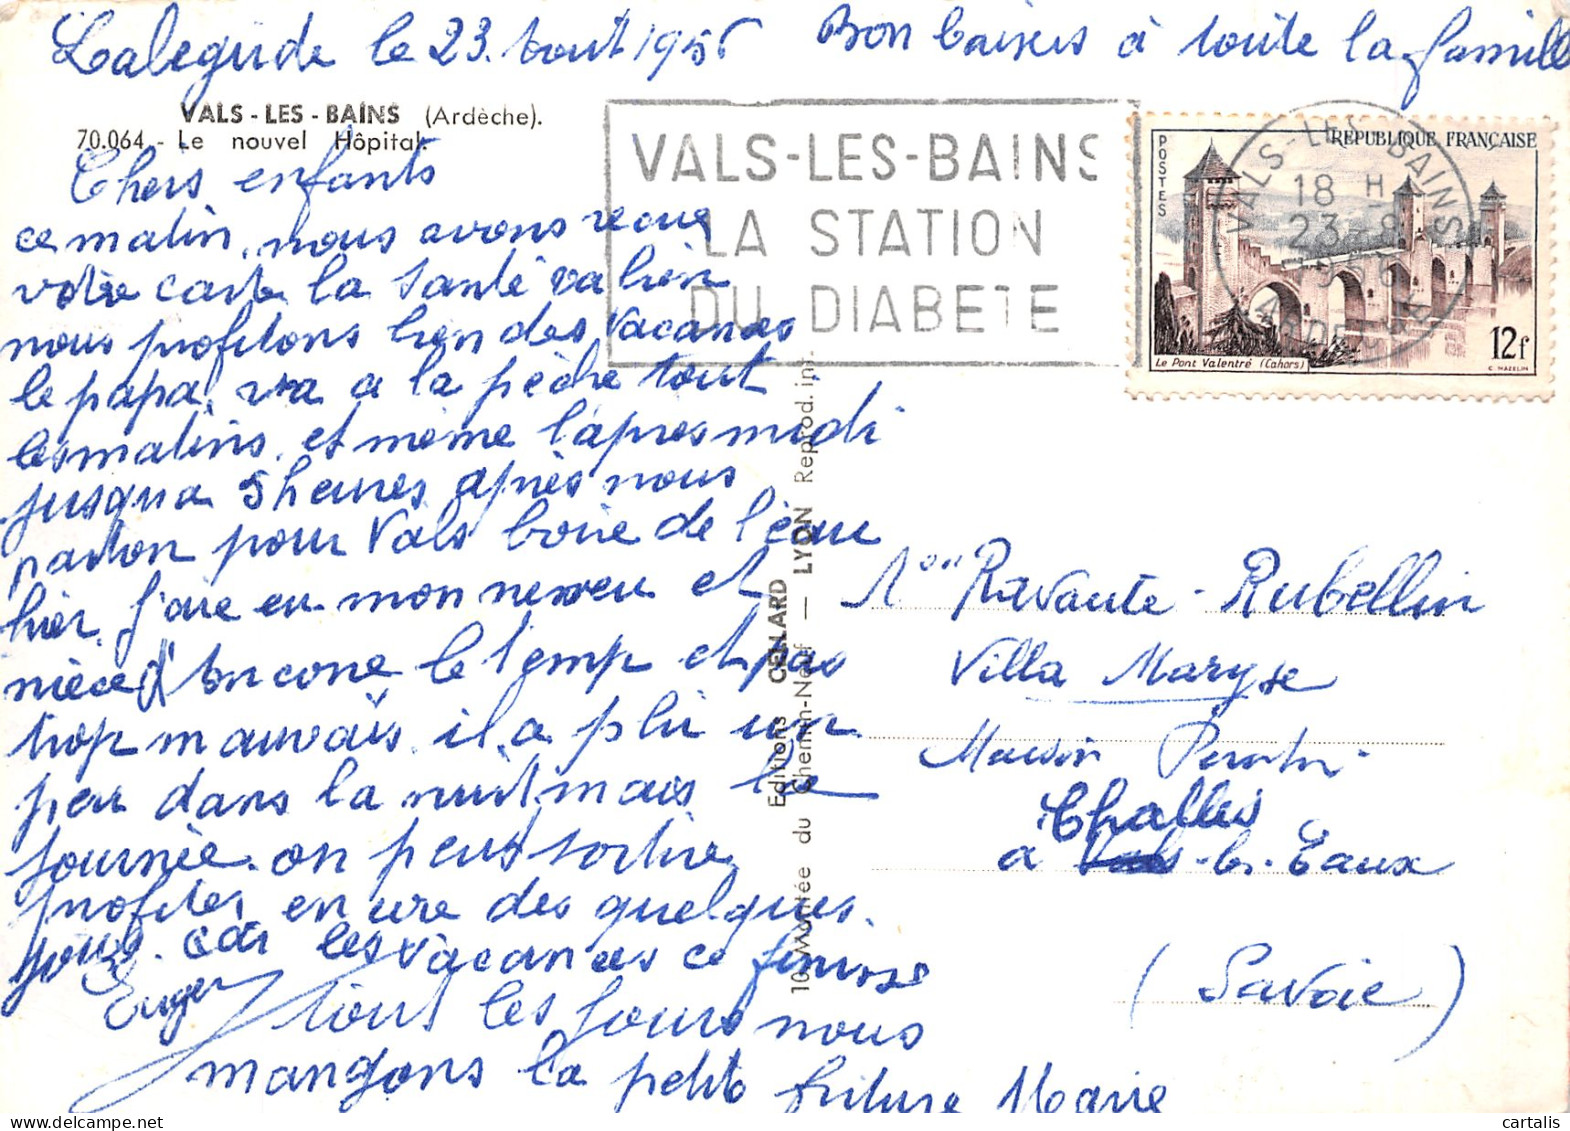 Lalegude le 23. Aout 1956 Bon baisers à toute la famille
VALS - LES - BAINS (Ardèche).
70.064 - Le nouvel Hôpital.
VALS-LES-BAINS
LA STATION
DU DIABETE
VALS-LES-BAINS
18 H
23-8
1956
ARDECHE
POSTES
REPUBLIQUE FRANÇAISE
Le Pont Valentré (Cahors)
12f
C. MAZELIN
Chers enfants
ce matin, nous avons recue
votre carte la santé va bien
nous profitons bien des vacances
le papa va a la pèche tout
les matins, et même l'apres midi
jusqua 5 heures après nous
parton pour Vals boire de l'eau
hier, j'aie eu mon neveu et
nièce encore le temp et pas
trop mauvais il a plu un
peu dans la nuit mais la
journée on peut sortire
profiter encore des quelques
jours. car les vacances ce finisse
Euger
tout les jours nous
mangons la petite friture Marie
Editions CELLARD
10, Montée du Chemin-Neuf — LYON Reprod. int.
Ravaute - Rubellin
Villa Maryse
Maison
Challes
a Vals-les-Eaux
(Savoie)
cartalis